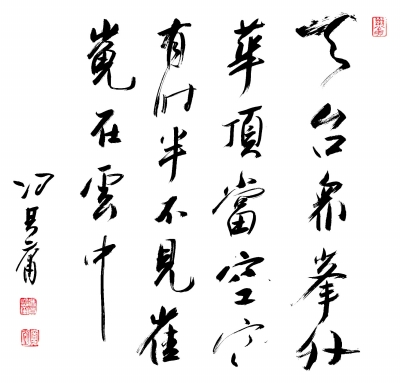 天台眾峯外
華頂當寒空
有时半不見崔
嵬在雲中
冯其庸